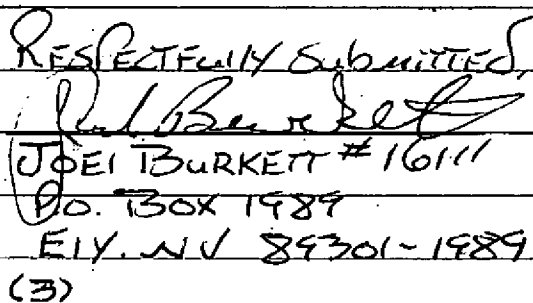 RESPECTFULLY SubmITTED,
Burkett
JOEl BURKETT #16111
P.O. BOX 1989
Ely. NV 89301-1989
(3)